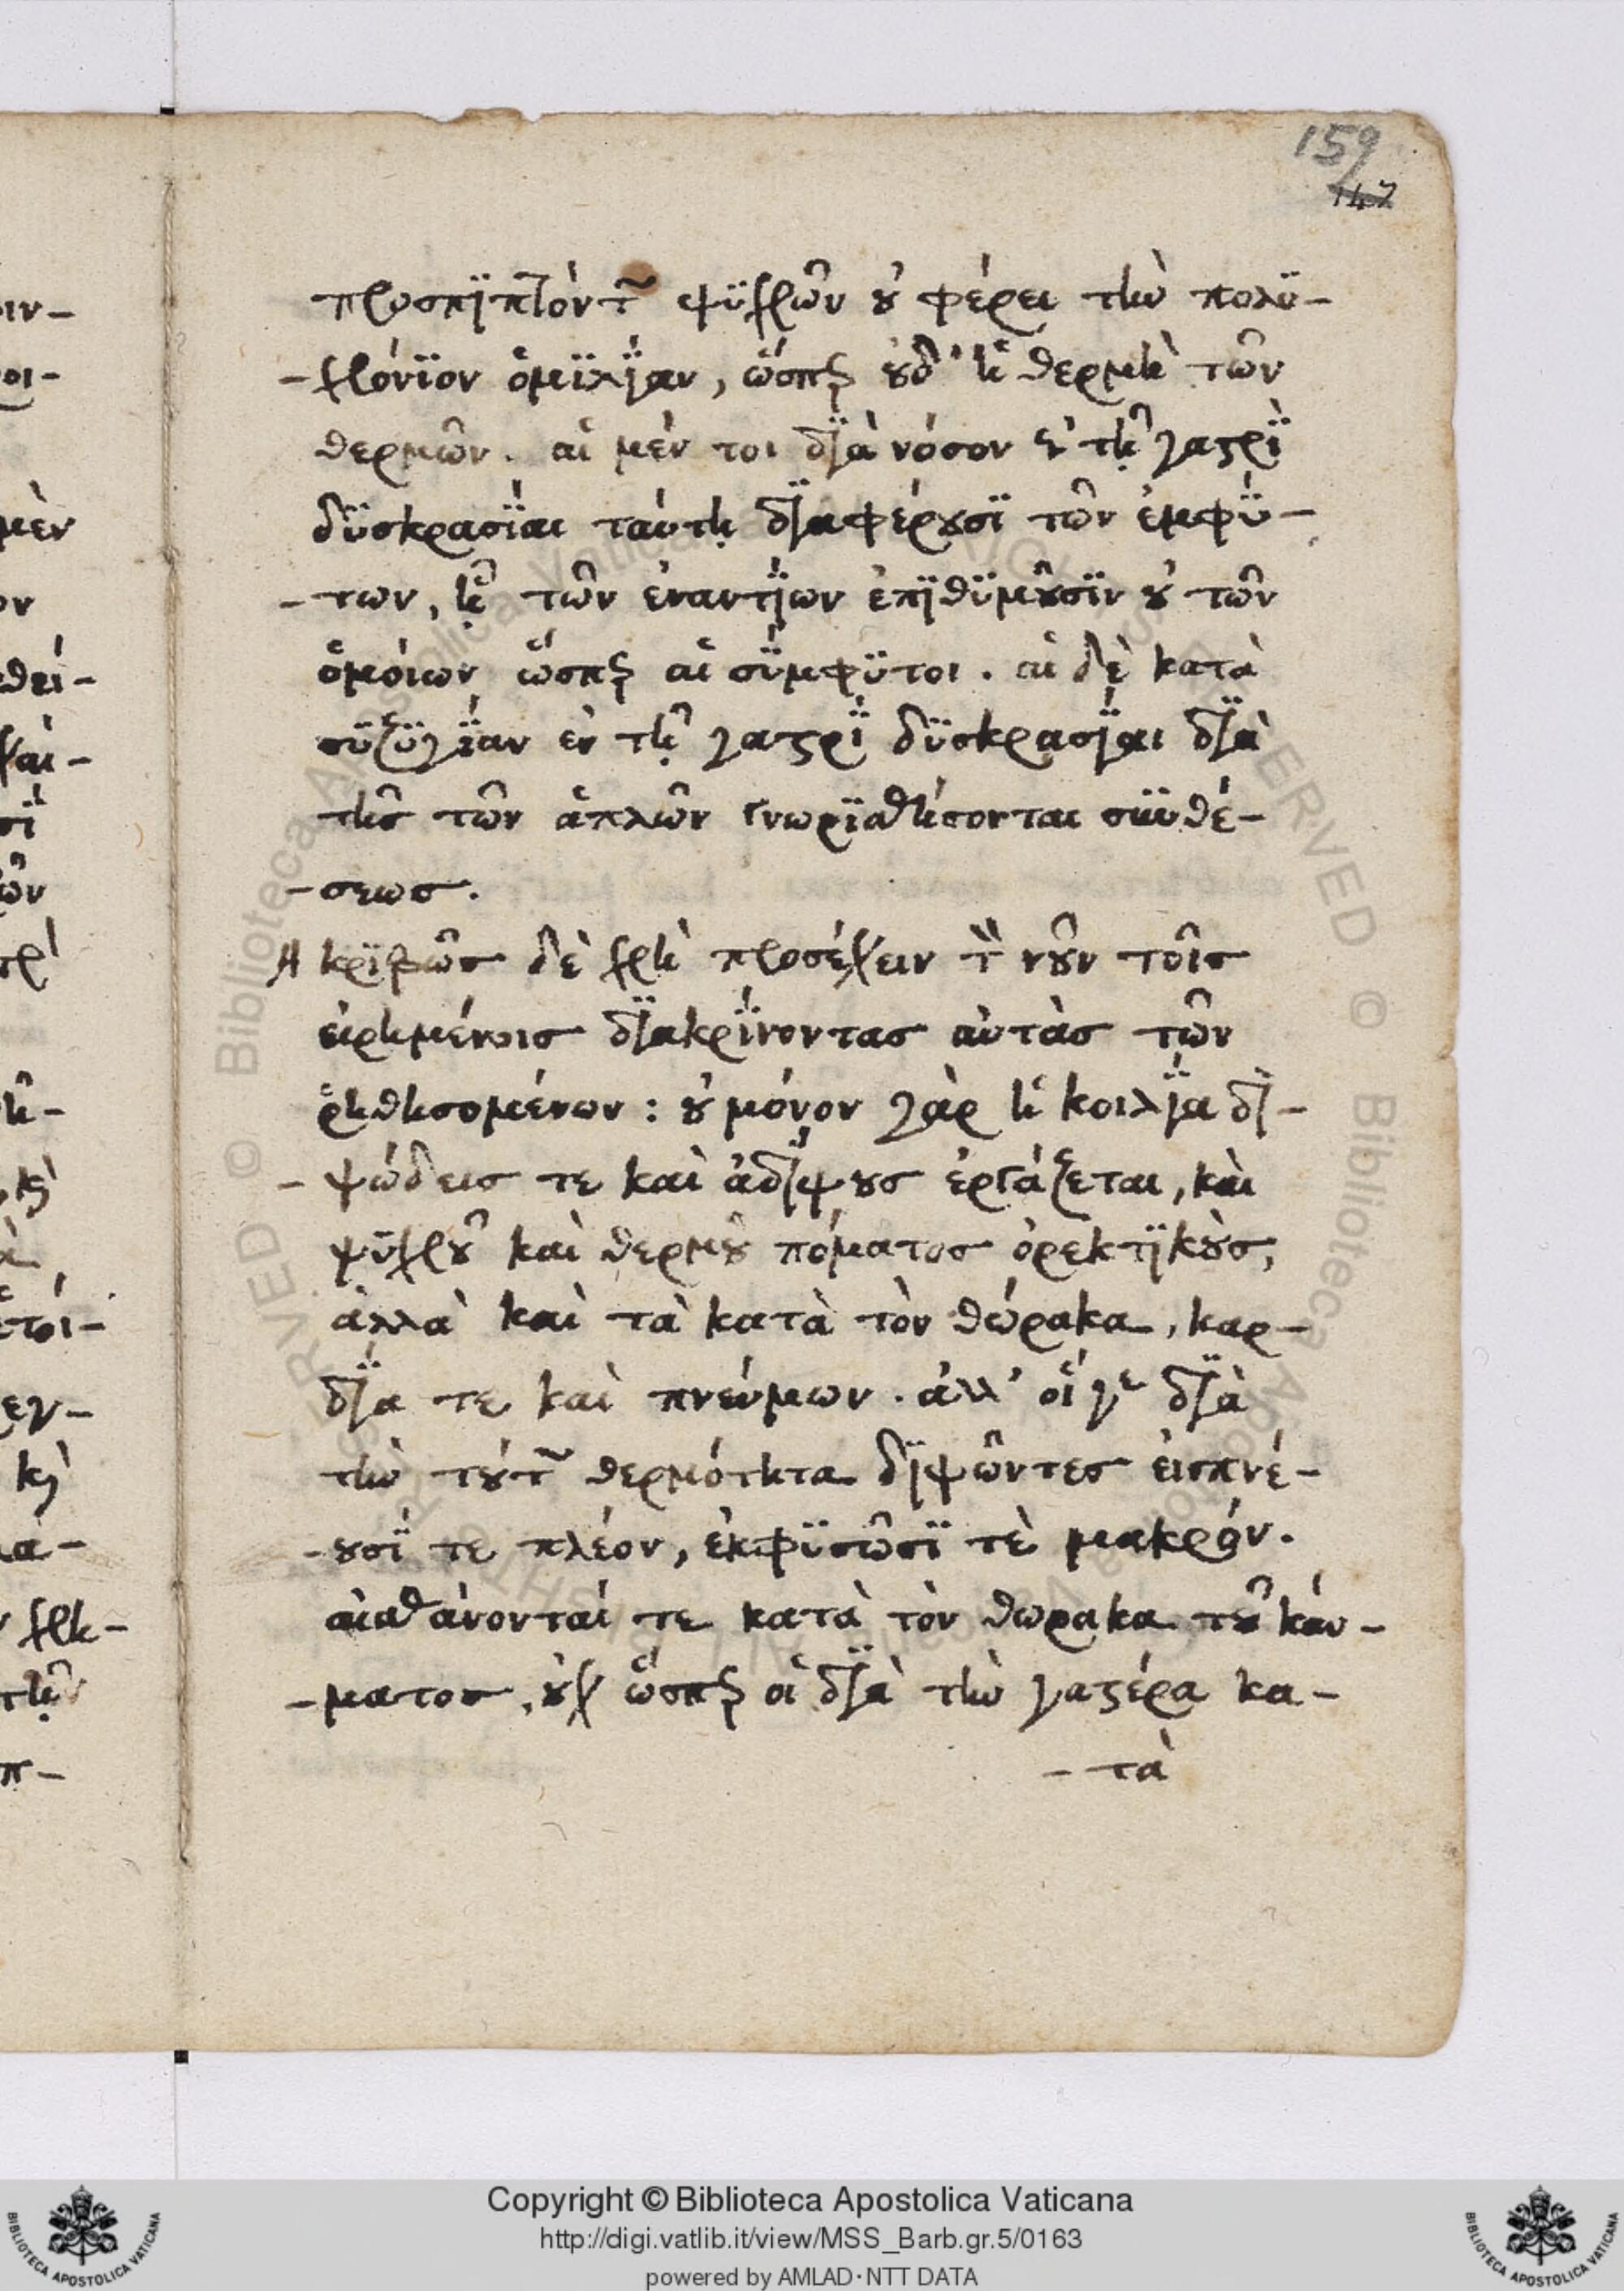 159
147
προσπϊπτόντων ψϋχρῶν οὐ φέρει τὴν πολϋ-
-χρόνϊον ὁμϊλΐαν, ὥσπερ οὐδ' ἡ θερμὴ τῶν
θερμῶν. αἱ μέν τοι δϊὰ νόσον ἐν τῇ γαστρὶ
δϋσκρασΐαι ταύτῃ δϊαφέρουσϊ τῶν ἐμφΰ-
-των, ᾗ τῶν ἐναντΐων ἐπϊθϋμοῦσϊν οὐ τῶν
ὁμοίων ὥσπερ αἱ σΰμφϋτοι. αἱ δὲ κατὰ
σϋζϋγΐαν ἐν τῇ γαστρὶ δϋσκρασΐαι δϊὰ
τῆς τῶν ἁπλῶν γνωρϊσθήσονται σϋνθέ-
-σεως.
Ἀκρϊβῶς δὲ χρὴ προσέχειν τὸν νοῦν τοῖς
εἰρημένοις δϊακρΐνοντας αὐτὰς τῶν
ῥηθησομένων: οὐ μόνον γὰρ ἡ κοιλΐα δϊ-
-ψώδεις τε καὶ ἀδΐψους ἐργάζεται, καὶ
ψϋχροῦ καὶ θερμοῦ πόματος ὀρεκτϊκοὺς,
ἀλλὰ καὶ τὰ κατὰ τὸν θώρακα, καρ-
δΐα τε καὶ πνεύμων. ἀλλ' οἵ γε δϊὰ
τὴν τούτων θερμότητα δϊψῶντες εἰσπνέ-
-ουσΐ τε πλέον, ἐκφϋσῶσϊ τὲ μακρόν.
αἰσθάνονταί τε κατὰ τὸν θωρακα τοῦ καύ-
-ματος, οὐχ ὥσπερ οἱ δϊὰ τὴν γαστέρα κα-
-τὰ
Copyright © Biblioteca Apostolica Vaticana
http://digi.vatlib.it/view/MSS_Barb.gr.5/0163
powered by AMLAD·NTT DATA